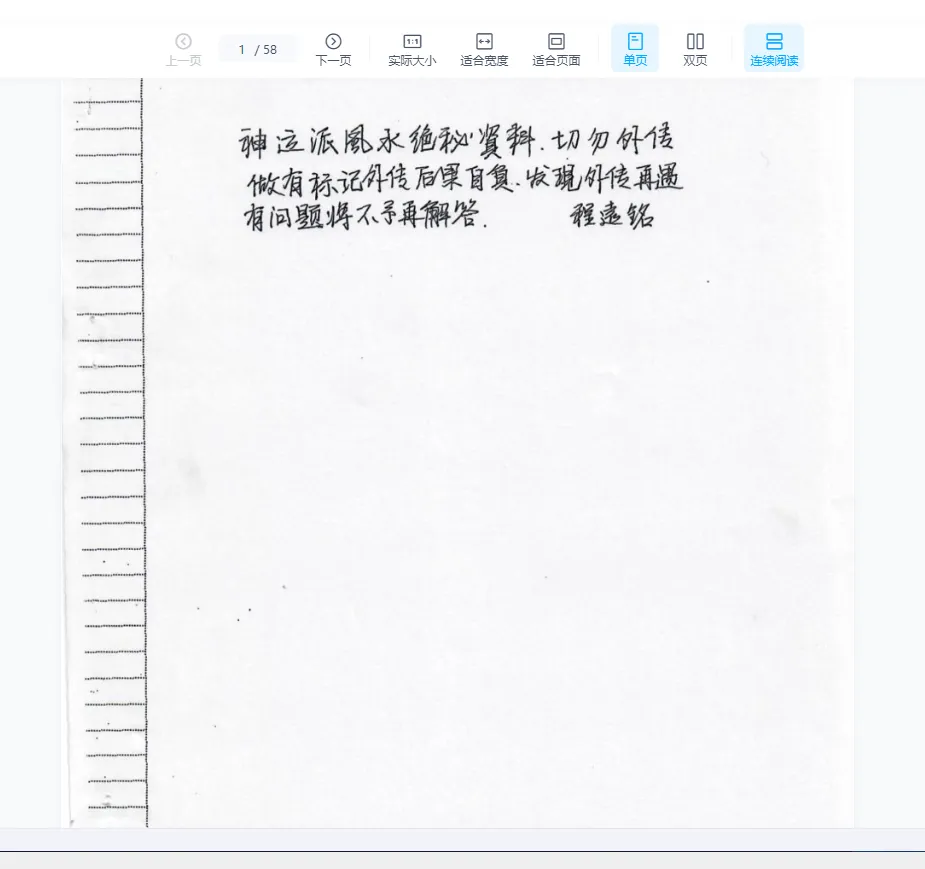 上一页
1 / 58
下一页
实际大小
适合宽度
适合页面
单页
双页
连续阅读
神运派風水绝秘資料.切勿外传
做有标记外传后果自負.发现外传再遇
有问题将不予再解答.
程遠铭